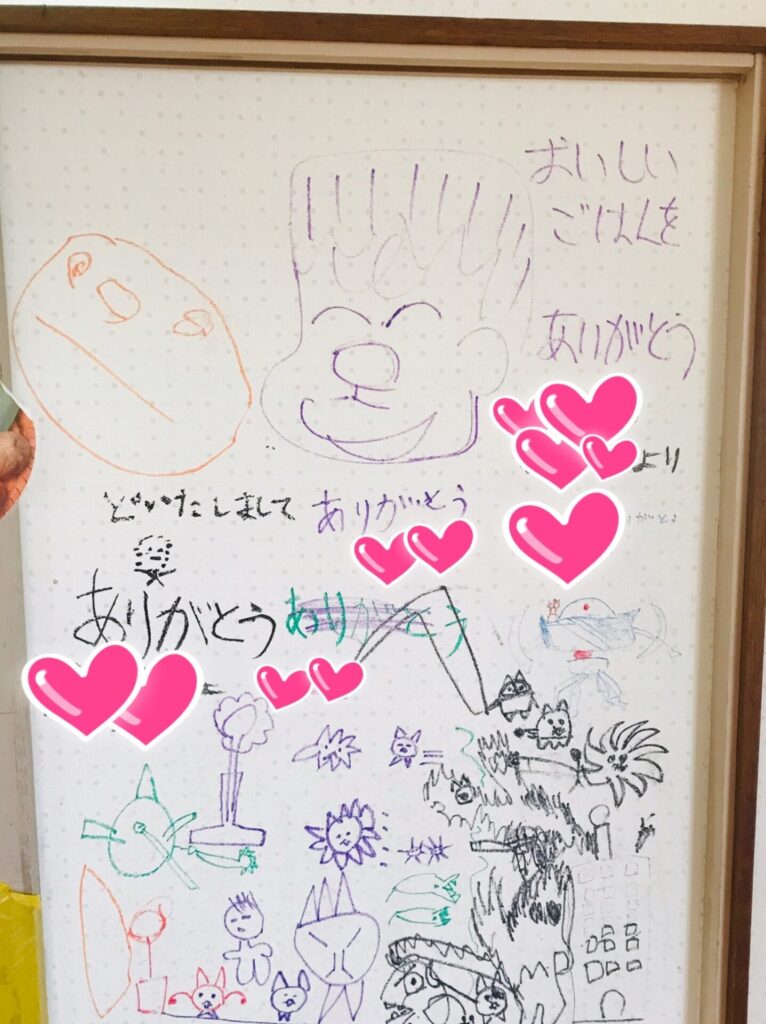 おいしい
ごはんを
ありがとう
より
どいたしまして
ありがとう
ありがとう
ありがとう